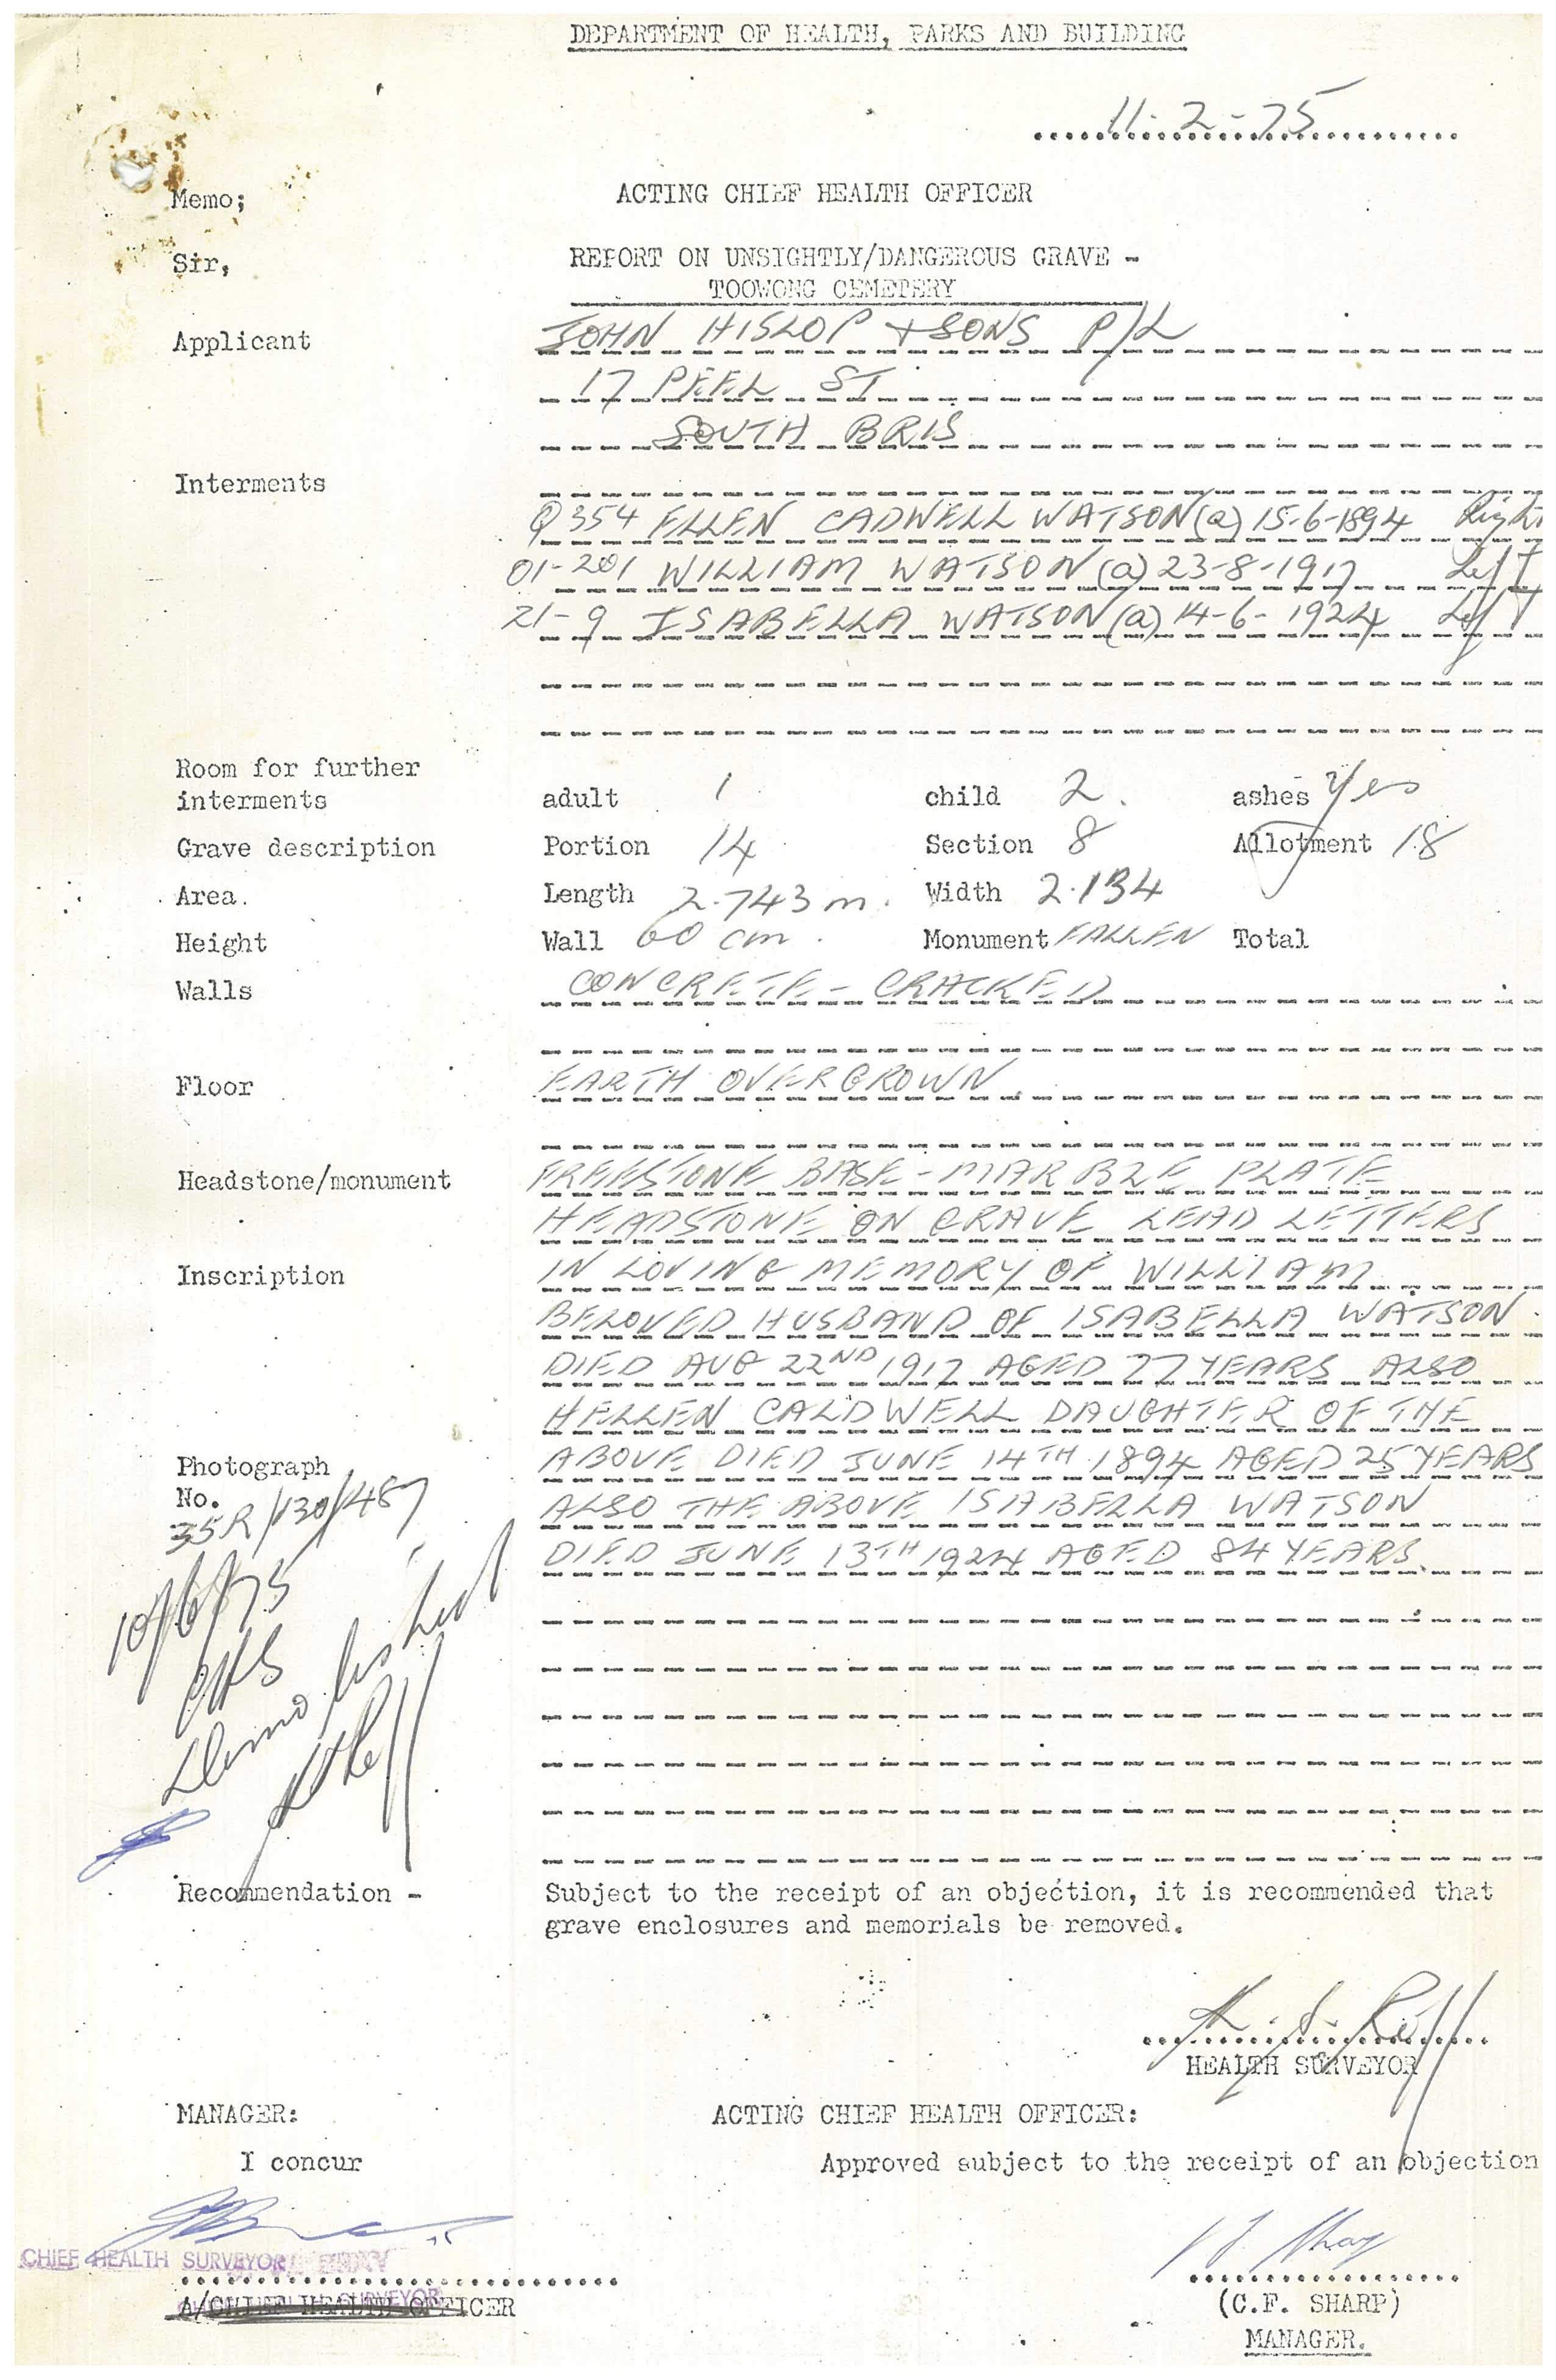 DEPARTMENT OF HEALTH, PARKS AND BUILDING
11-2-75
Memo; ACTING CHIEF HEALTH OFFICER
Sir, REPORT ON UNSIGHTLY/DANGEROUS GRAVE -
TOOWONG CEMETERY
Applicant JOHN HISLOP & SONS P/L
17 PEEL ST
SOUTH BRIS
Interments
Q354 ELLEN CADWELL WATSON (a) 15-6-1894 Right
01-201 WILLIAM WATSON (a) 23-8-1917 Left
21-9 ISABELLA WATSON (a) 14-6-1924 Left
Room for further
interments adult 1 child 2. ashes Yes
Grave description Portion 14 Section 8 Allotment 18
Area. Length 2.743 m. Width 2.134
Height Wall 60 cm. Monument FALLEN Total
Walls CONCRETE - CRACKED
Floor EARTH OVERGROWN.
Headstone/monument FREESTONE BASE - MARBLE PLATE
HEADSTONE ON GRAVE LEAD LETTERS
Inscription IN LOVING MEMORY OF WILLIAM
BELOVED HUSBAND OF ISABELLA WATSON.
DIED AUG 22ND 1917 AGED 77 YEARS ALSO
HELLEN CALDWELL DAUGHTER OF THE
Photograph ABOVE DIED JUNE 14TH 1894 AGED 25 YEARS
No. ALSO THE ABOVE ISABELLA WATSON
35R/130/487
DIED JUNE 13TH 1924 AGED 84 YEARS.
10/6/75
CHS
Recommendation - Subject to the receipt of an objection, it is recommended that
grave enclosures and memorials be removed.
HEALTH SURVEYOR
MANAGER: ACTING CHIEF HEALTH OFFICER:
I concur Approved subject to the receipt of an objection
CHIEF HEALTH SURVEYOR
A/CHIEF HEALTH OFFICER (C.F. SHARP)
MANAGER.